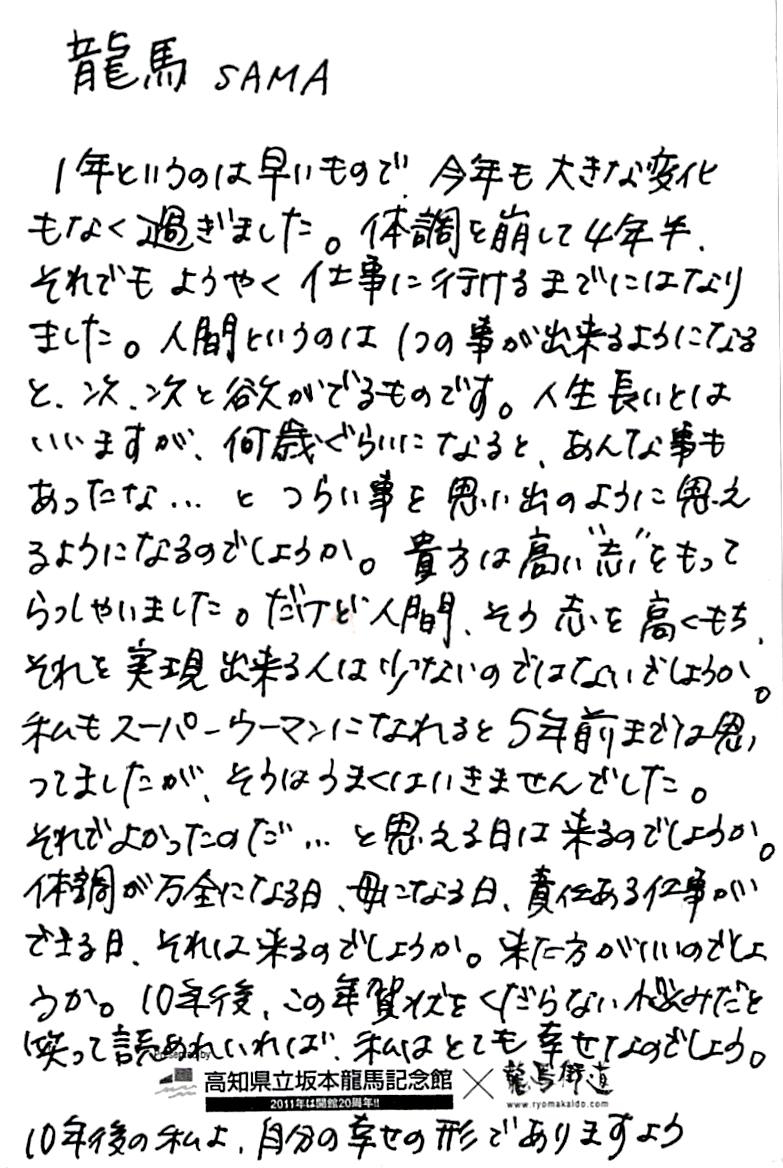 龍馬 SAMA
1年というのは早いもので、今年も大きな変化
もなく過ぎました。体調を崩して4年半、
それでもようやく仕事に行けるまでにはなり
ました。人間というのは1つの事が出来るようになる
と、次、次と欲がでるものです。人生長いとは
いいますが、何歳ぐらいになると、あんな事も
あったな…とつらい事を思い出のように思え
るようになるのでしょうか。貴方は高い“志”をもって
らっしゃいました。だけど人間、そう志を高くもち、
それを実現出来る人は少ないのではないでしょうか。
私もスーパーウーマンになれると5年前までは思
ってましたが、そうはうまくはいきませんでした。
それでよかったのだ…と思える日は来るのでしょうか。
体調が万全になる日、母になる日、責任ある仕事が
できる日、それは来るのでしょうか。来た方がいいのでしょ
うか。10年後、この年賀状をくだらない悩みだと
笑って読めれいれば、私はとても幸せなのでしょう。
Presented by
高知県立坂本龍馬記念館 × 龍馬街道
2011年は開館20周年!!
www.ryomakaido.com
10年後の私よ、自分の幸せの形でありますよう